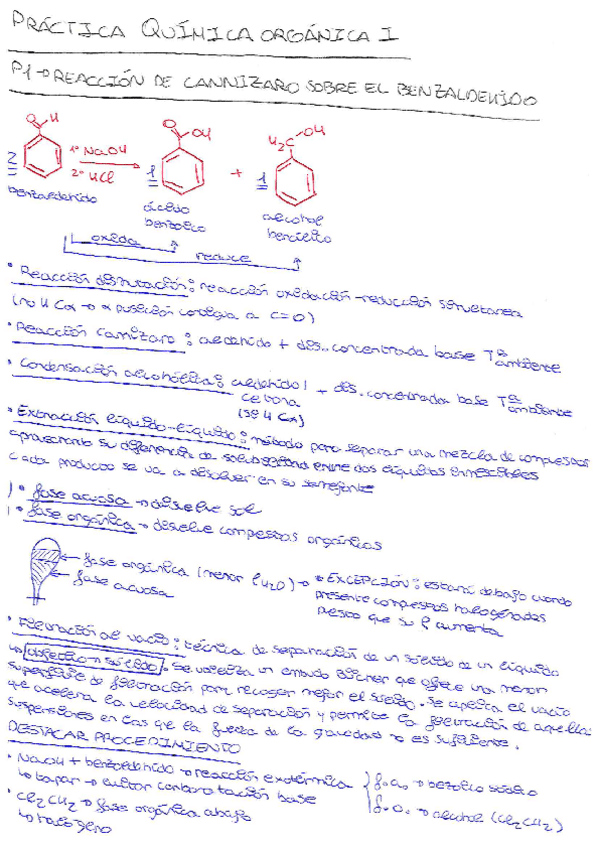 PRÁCTICA QUÍMICA ORGÁNICA I
P1→REACCIÓN DE CANNIZARO SOBRE EL BENZALDEHIDO
O H O OH H₂C OH
2 1º NaOH 1 + 1
2º HCl
benzaldehído ácido benzoico alcohol bencílico
oxida
reduce
• Reacción dismutación: reacción oxidación-reducción simultanea
(no H Cα → α posición contigua a C=O)
• Reacción Cannizaro: aldehído + dis. concentrada base Tª ambiente
• Condensación alcohólica: aldehído / cetona + dis. concentrada base Tª ambiente
(sí H Cα)
• Extracción líquido-líquido: método para separar una mezcla de compuestos
aprovechando su diferencia de solubilidad entre dos líquidos inmiscibles
cada producto se va a disolver en su semejante
• fase acuosa → disuelve sal
• fase orgánica → disuelve compuestos orgánicos
fase orgánica (menor ρ H₂O) → * EXCEPCIÓN: estará debajo cuando
fase acuosa presente compuestos halogenados
puesto que su ρ aumenta
• Filtración al vacío: técnica de separación de un sólido de un líquido
↳ objetivo → sólido. Se utiliza un embudo Büchner que ofrece una menor
superficie de filtración para recoger mejor el sólido. Se aplica el vacío
que acelera la velocidad de separación y permite la filtración de aquellas
suspensiones en las que la fuerza de la gravedad no es suficiente.
DESTACAR PROCEDIMIENTO
• NaOH + benzaldehído → reacción exotérmica f.a. → bezoico sódico
↳ tapar → evitar carbonatación base f.o. → alcohol (Cl₂CH₂)
• Cl₂CH₂ → fase orgánica abajo
↳ halógeno